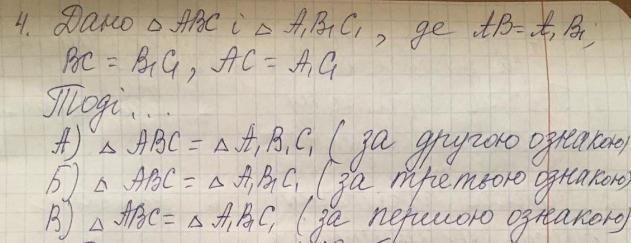 4. Дано △ ABC і △ A₁B₁C₁, де AB = A₁B₁,
BC = B₁C₁, AC = A₁C₁
Тоді...
А) △ ABC = △ A₁B₁C₁ (за другою ознакою)
Б) △ ABC = △ A₁B₁C₁ (за третьою ознакою)
В) △ ABC = △ A₁B₁C₁ (за першою ознакою)